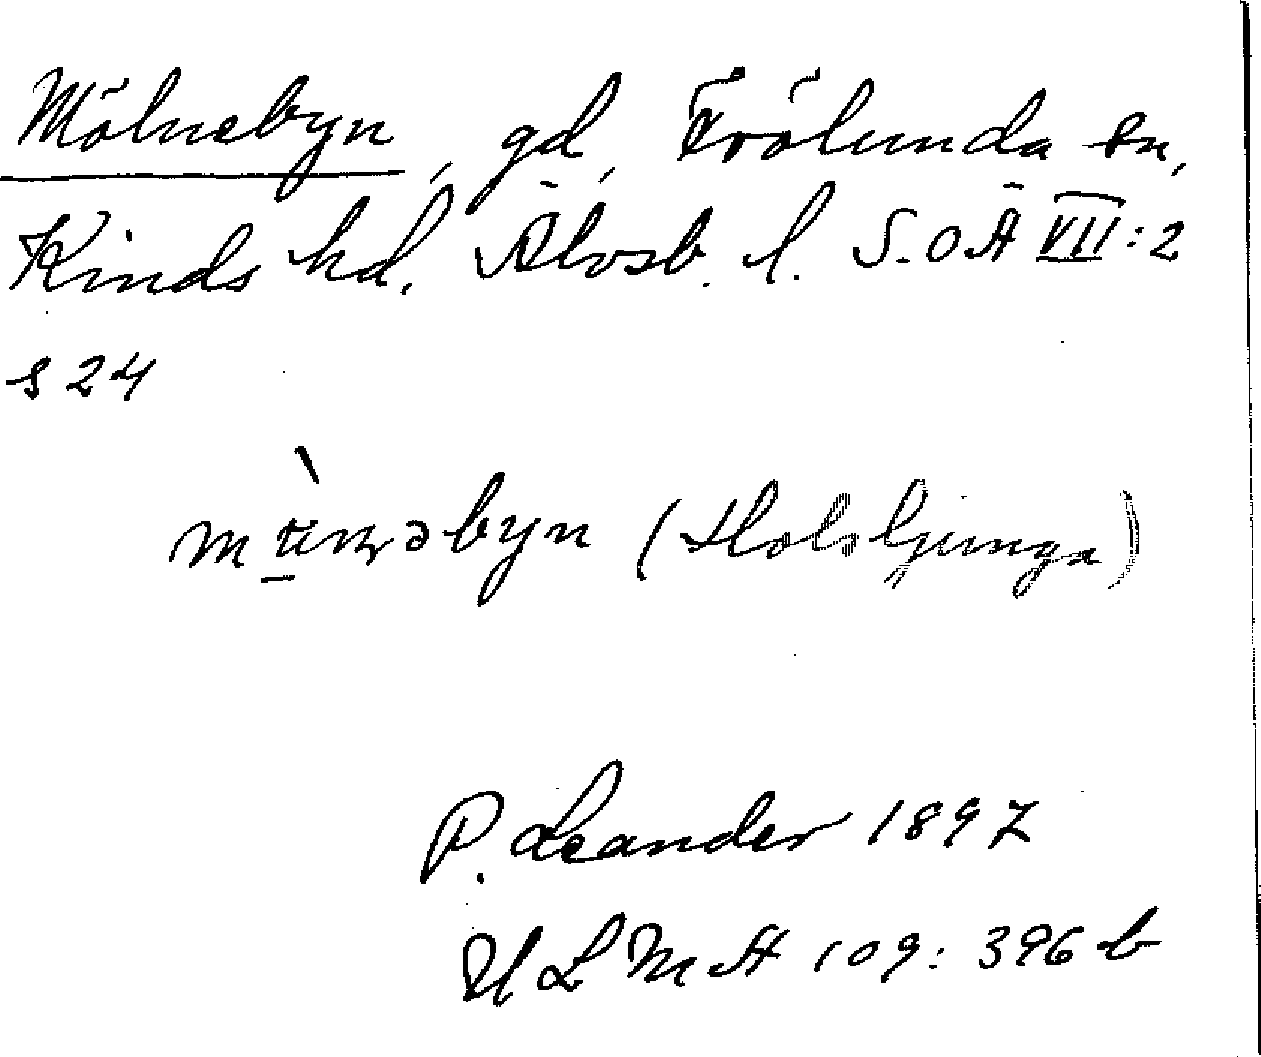 Mölnebyn, gd, Frölunda sn,
Kinds hd. Älvsb. l. S.O.Ä VII:2
s 24
byn (Holsljunga)
P. Leander 1897
ULMA 109: 396 b